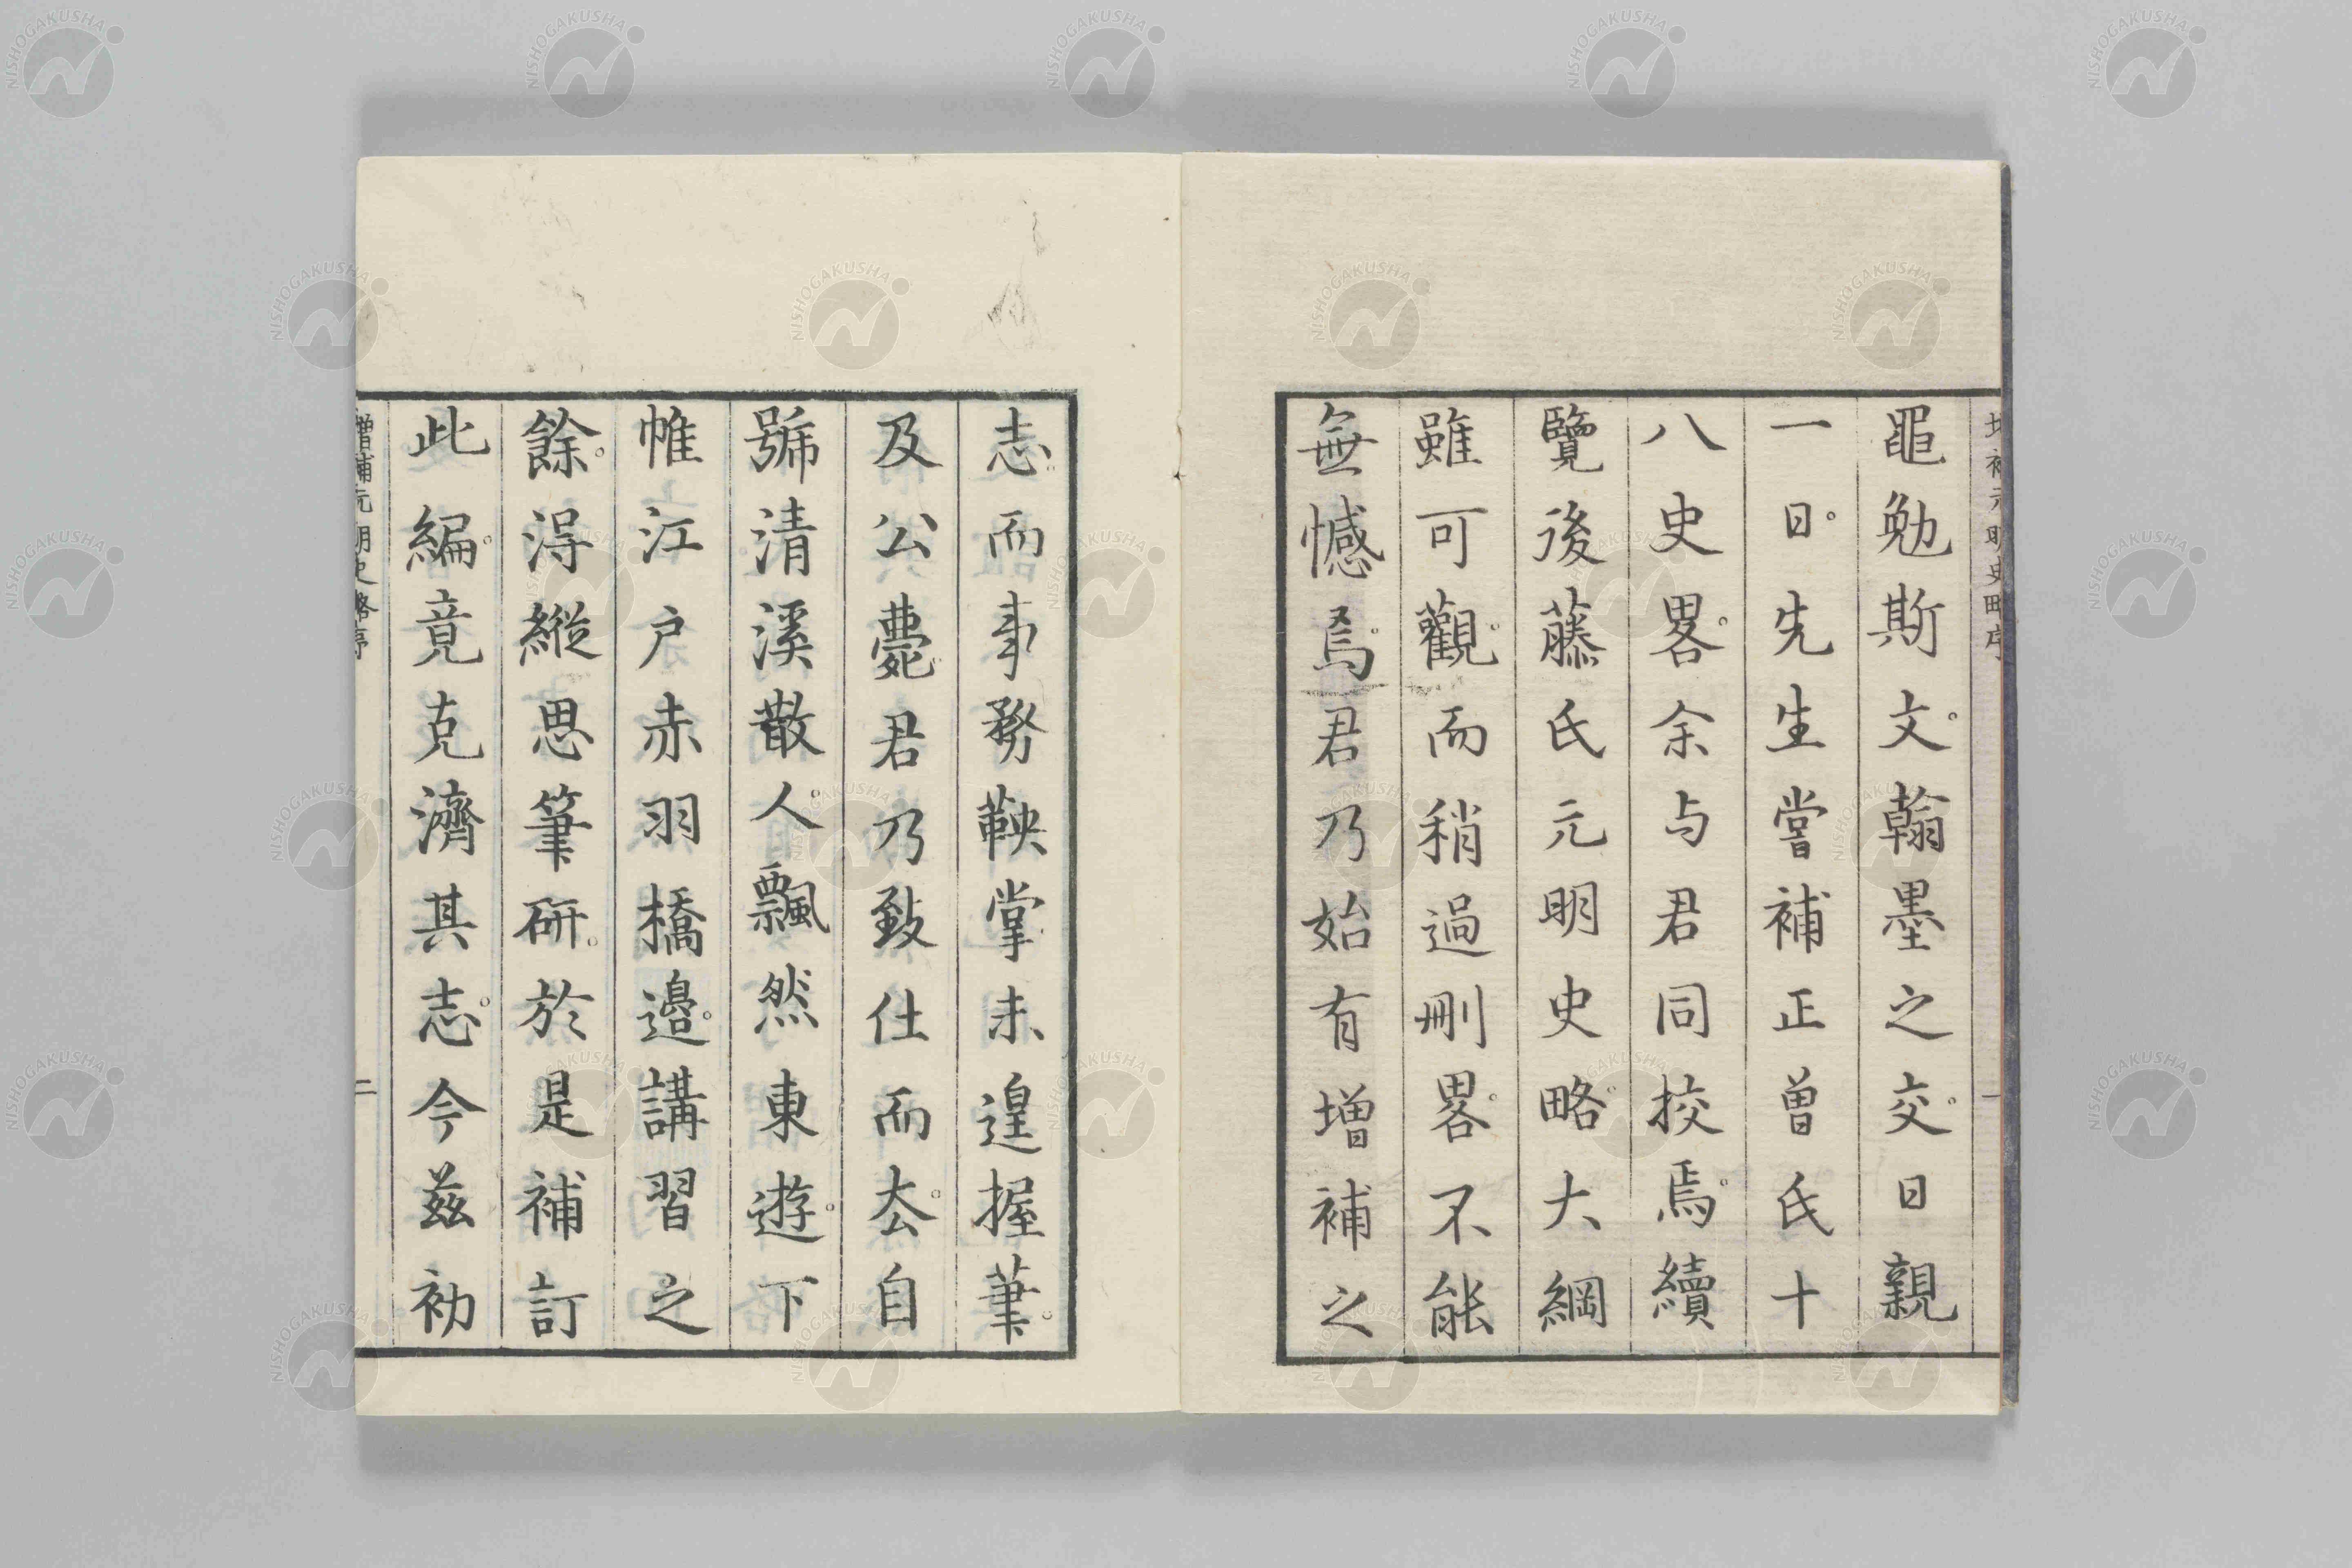 増補元明史略序
一
黽勉斯文。翰墨之交。日親
一日。先生嘗補正曽氏十
八史畧。余与君同挍焉。續
覽後藤氏元明史略。大綱
雖可觀。而稍過刪畧。不能
無憾焉。君乃始有増補之
志。而事務鞅掌。未遑握筆。
及公薨。君乃致仕而去。自
號清溪散人。飄然東遊。下
帷江戸赤羽橋邉。講習之
餘。淂縱思筆研。於是補訂
此編。竟克濟其志。今茲初
増補元明史略序
二
NISHOGAKUSHA